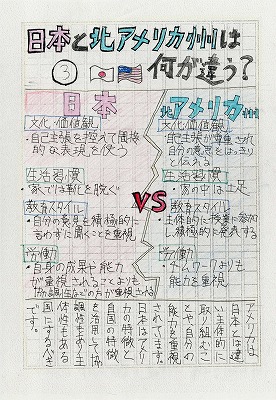 日本と北アメリカ州は
③ 何が違う?
日本
文化・価値観
・自己主張を控えて間接
的な表現を使う
生活習慣
・家では靴を脱ぐ
教育スタイル
・自分の意見を積極的に
言わずに聞くことを重視
労働
・自身の成果や能力
が重視されることよりも
協調性などの方が重視される
VS
北アメリカ州
文化・価値観
・自己主張が尊重され
自分の意見とはっきり
と伝える
生活習慣
・家の中は土足
教育スタイル
・主体的に授業に参加
積極的に発表する
労働
・チームワークよりも
能力を重視
アメリカは
日本とは違
い主体的に
取り組むこ
とや、自分の
能力を重視
されています。
日本はアメリ
カの特徴と
自国の特徴
を活用して協
調性もあり主
体性もある
国にするべき
です。